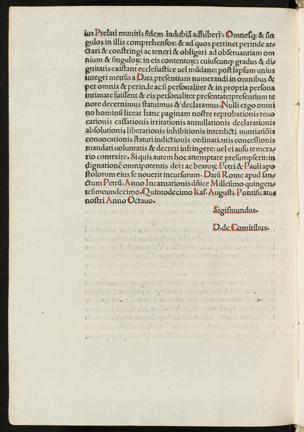 ius Prelati munitis fidem indubiā adhiberi. Omnesq; & sin
gulos in illis comprehensos: & ad quos pertinet perinde arc
tari & constringi ac teneri & obligari ad obseruantiam om
nium & singulor; in eis contentor; cuiuscunq; gradus & di
gnitatis existant ecclesiastice uel mūdane: post lapsum unius
integri mensis a Data presentium numerandi in omnibus &
per omnia & perinde ac si personaliter & in propria persona
intimate fuissent & eis personaliter presentate presentium te
nore decernimus statuimus & declaramus. Nulli ergo omni
no hominū liceat hanc paginam nostre reprobationis reuo
cationis cassationis irritationis annullationis declarationis
absolutionis liberationis inhibitionis interdicti nuntiatiōis
conuocationis statuti indictionis ordinationis concessionis
mandati uoluntatis & decreti infringere: uel ei ausu temera
rio contraire. Si quis autem hoc attemptare presumpserit: in
dignationē omnipotentis dei: ac beator; Petri & Pauli apo
stolorum eius se nouerit incursurum. Datū Rome apud san
ctum Petrū. Anno Incarnationis dñice Millesimo quingen
tesimoundecimo. Quintodecimo Kał. Augusti. Pontificatus
nostri Anno Octauo.
Sigismundus.
D. de Comitibus.